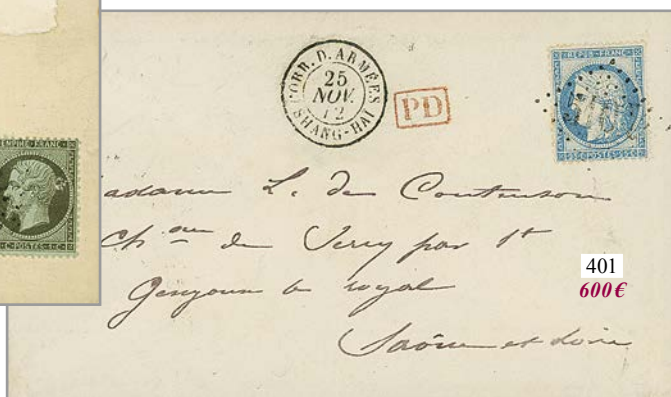 CORR. D. ARMÉES
25
NOV.
72
SHANG-HAI
PD
REPUB. FRANC.
25 C. POSTES 25 C.
5104
EMPIRE FRANC.
POSTES
adame L. de Coutenson
Ch au de Verry par St
Gengoux le royal
Saône et Loire
401
600€